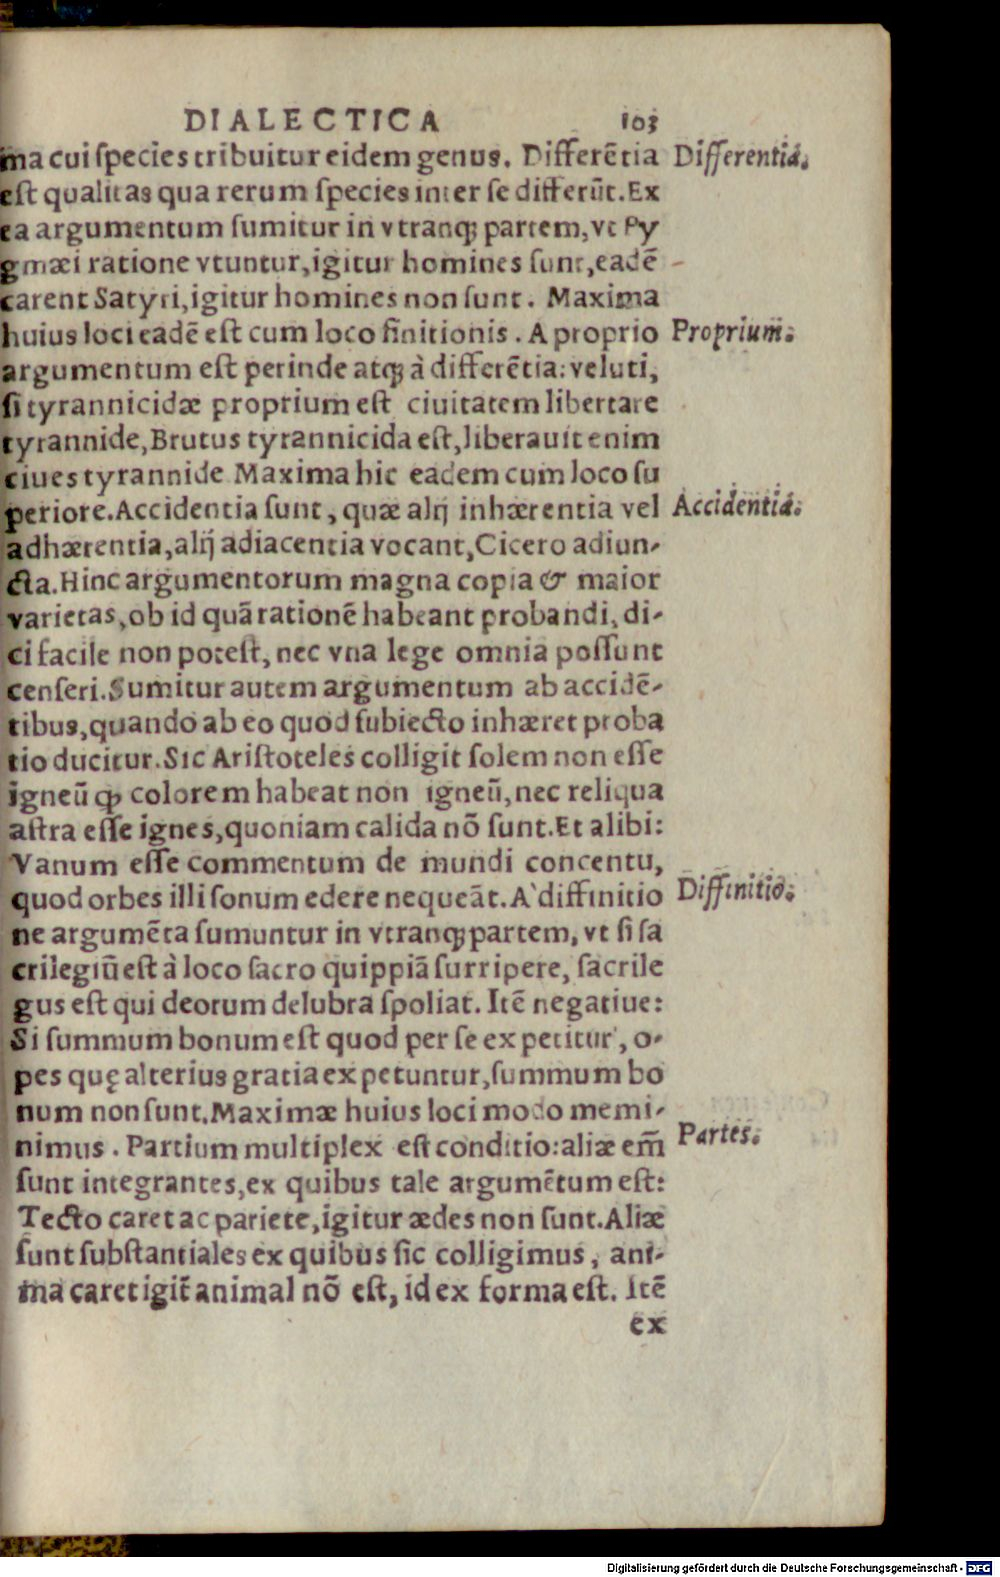 DIALECTICA 103
ma cui ſpecies tribuitur eidem genus. Differētia
Differentia.
eſt qualitas qua rerum ſpecies inter ſe differūt. Ex
ea argumentum ſumitur in vtranqꝫ partem, vt Py
gmæi ratione vtuntur, igitur homines ſunt, eadē
carent Satyri, igitur homines non ſunt. Maxima
huius loci eadē eſt cum loco finitionis. A proprio
Proprium.
argumentum eſt perinde atqꝫ à differētia: veluti,
ſi tyrannicidæ proprium eſt ciuitatem libertare
tyrannide, Brutus tyrannicida eſt, liberauit enim
ciues tyrannide Maxima hic eadem cum loco ſu
periore. Accidentia ſunt, quæ alij inhærentia vel
Accidentia.
adhærentia, alij adiacentia vocant, Cicero adiun-
cta. Hinc argumentorum magna copia & maior
varietas, ob id quā rationē habeant probandi, di-
ci facile non poteſt, nec vna lege omnia poſſunt
cenſeri. Sumitur autem argumentum ab accidē-
tibus, quando ab eo quod ſubiecto inhæret proba
tio ducitur. Sic Ariſtoteles colligit ſolem non eſſe
igneū ꝙ colorem habeat non igneū, nec reliqua
aſtra eſſe ignes, quoniam calida nō ſunt. Et alibi:
Vanum eſſe commentum de mundi concentu,
quod orbes illi ſonum edere nequeāt. A` diffinitio
Diffinitio.
ne argumēta ſumuntur in vtranqꝫ partem, vt ſi ſa
crilegiū eſt à loco ſacro quippiā ſurripere, ſacrile
gus eſt qui deorum delubra ſpoliat. Itē negatiue:
Si ſummum bonum eſt quod per ſe expetitur, o-
pes quę alterius gratia expetuntur, ſummum bo
num non ſunt. Maximæ huius loci modo memi-
nimus. Partium multiplex eſt conditio: aliæ em̄
Partes.
ſunt integrantes, ex quibus tale argumētum eſt:
Tecto caret ac pariete, igitur ædes non ſunt. Aliæ
ſunt ſubſtantiales ex quibus ſic colligimus, ani-
ma caret igit̄ animal nō eſt, id ex forma eſt. Itē
ex
Digitalisierung gefördert durch die Deutsche Forschungsgemeinschaft - DFG